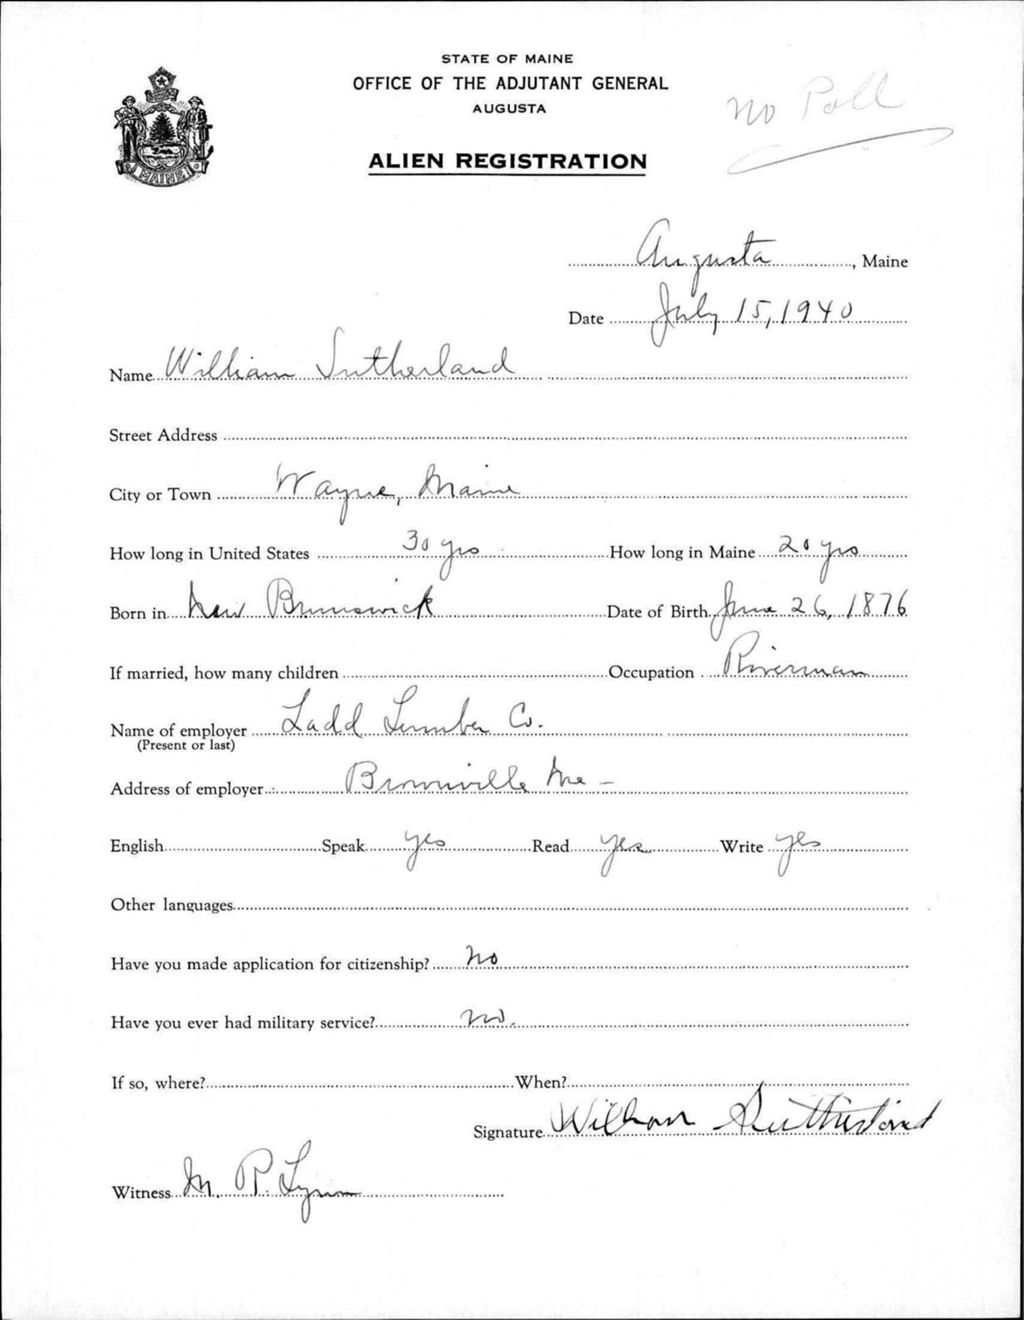 STATE OF MAINE
OFFICE OF THE ADJUTANT GENERAL
AUGUSTA
no Poll
ALIEN REGISTRATION
MAINE
Augusta, Maine
Date July 15, 1940
Name William Sutherland
Street Address
City or Town Wayne, Maine
How long in United States 30 yrs How long in Maine 20 yrs
Born in New Brunswick Date of Birth June 26, 1876
If married, how many children Occupation Riverman
Name of employer Ladd Lumber Co.
(Present or last)
Address of employer Brownville Me -
English Speak yes Read yes Write yes
Other languages
Have you made application for citizenship? no
Have you ever had military service? no.
If so, where? When?
Signature William Sutherland
Witness M. P. Lynn